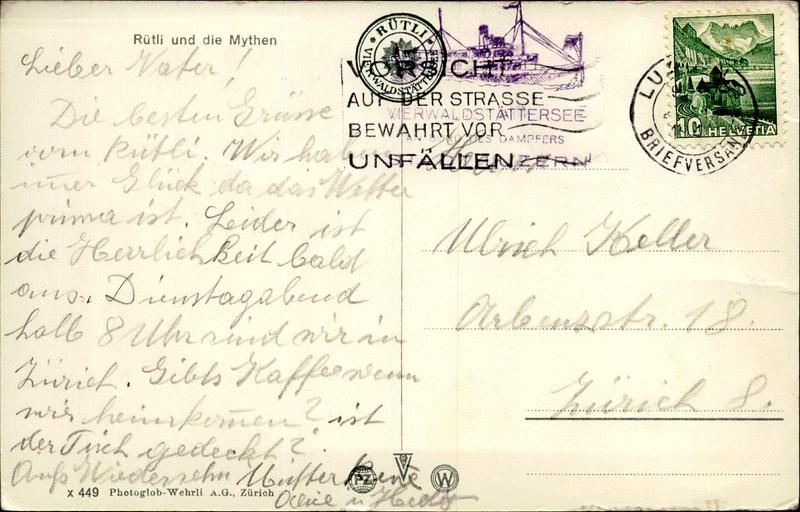 Rütli und die Mythen
Lieber Vater!
Die besten Grüsse
vom Rütli. Wir haben
imer Glück da das Wetter
prima ist. Leider ist
die Herrlichkeit bald
aus. Dienstagabend
halb 8 Uhr sind wir in
Zürich. Gibts Kaffee wenn
wir heimkomen? ist
der Tisch gedeckt?
Aufs Wiedersehn Mutter
u. Hedy
x 449 Photoglob-Wehrli A.G., Zürich
PZ
W
RÜTLI
VIERWALDSTÄTTERSEE
VORSICHT
AUF DER STRASSE
BEWAHRT VOR
UNFÄLLEN
VIERWALDSTÄTTERSEE
DES DAMPFERS
LUZERN
LUZ
BRIEFVERSAND
10 HELVETIA
Herrn
Ulrich Keller
Arbenzstr. 18.
Zürich 8.